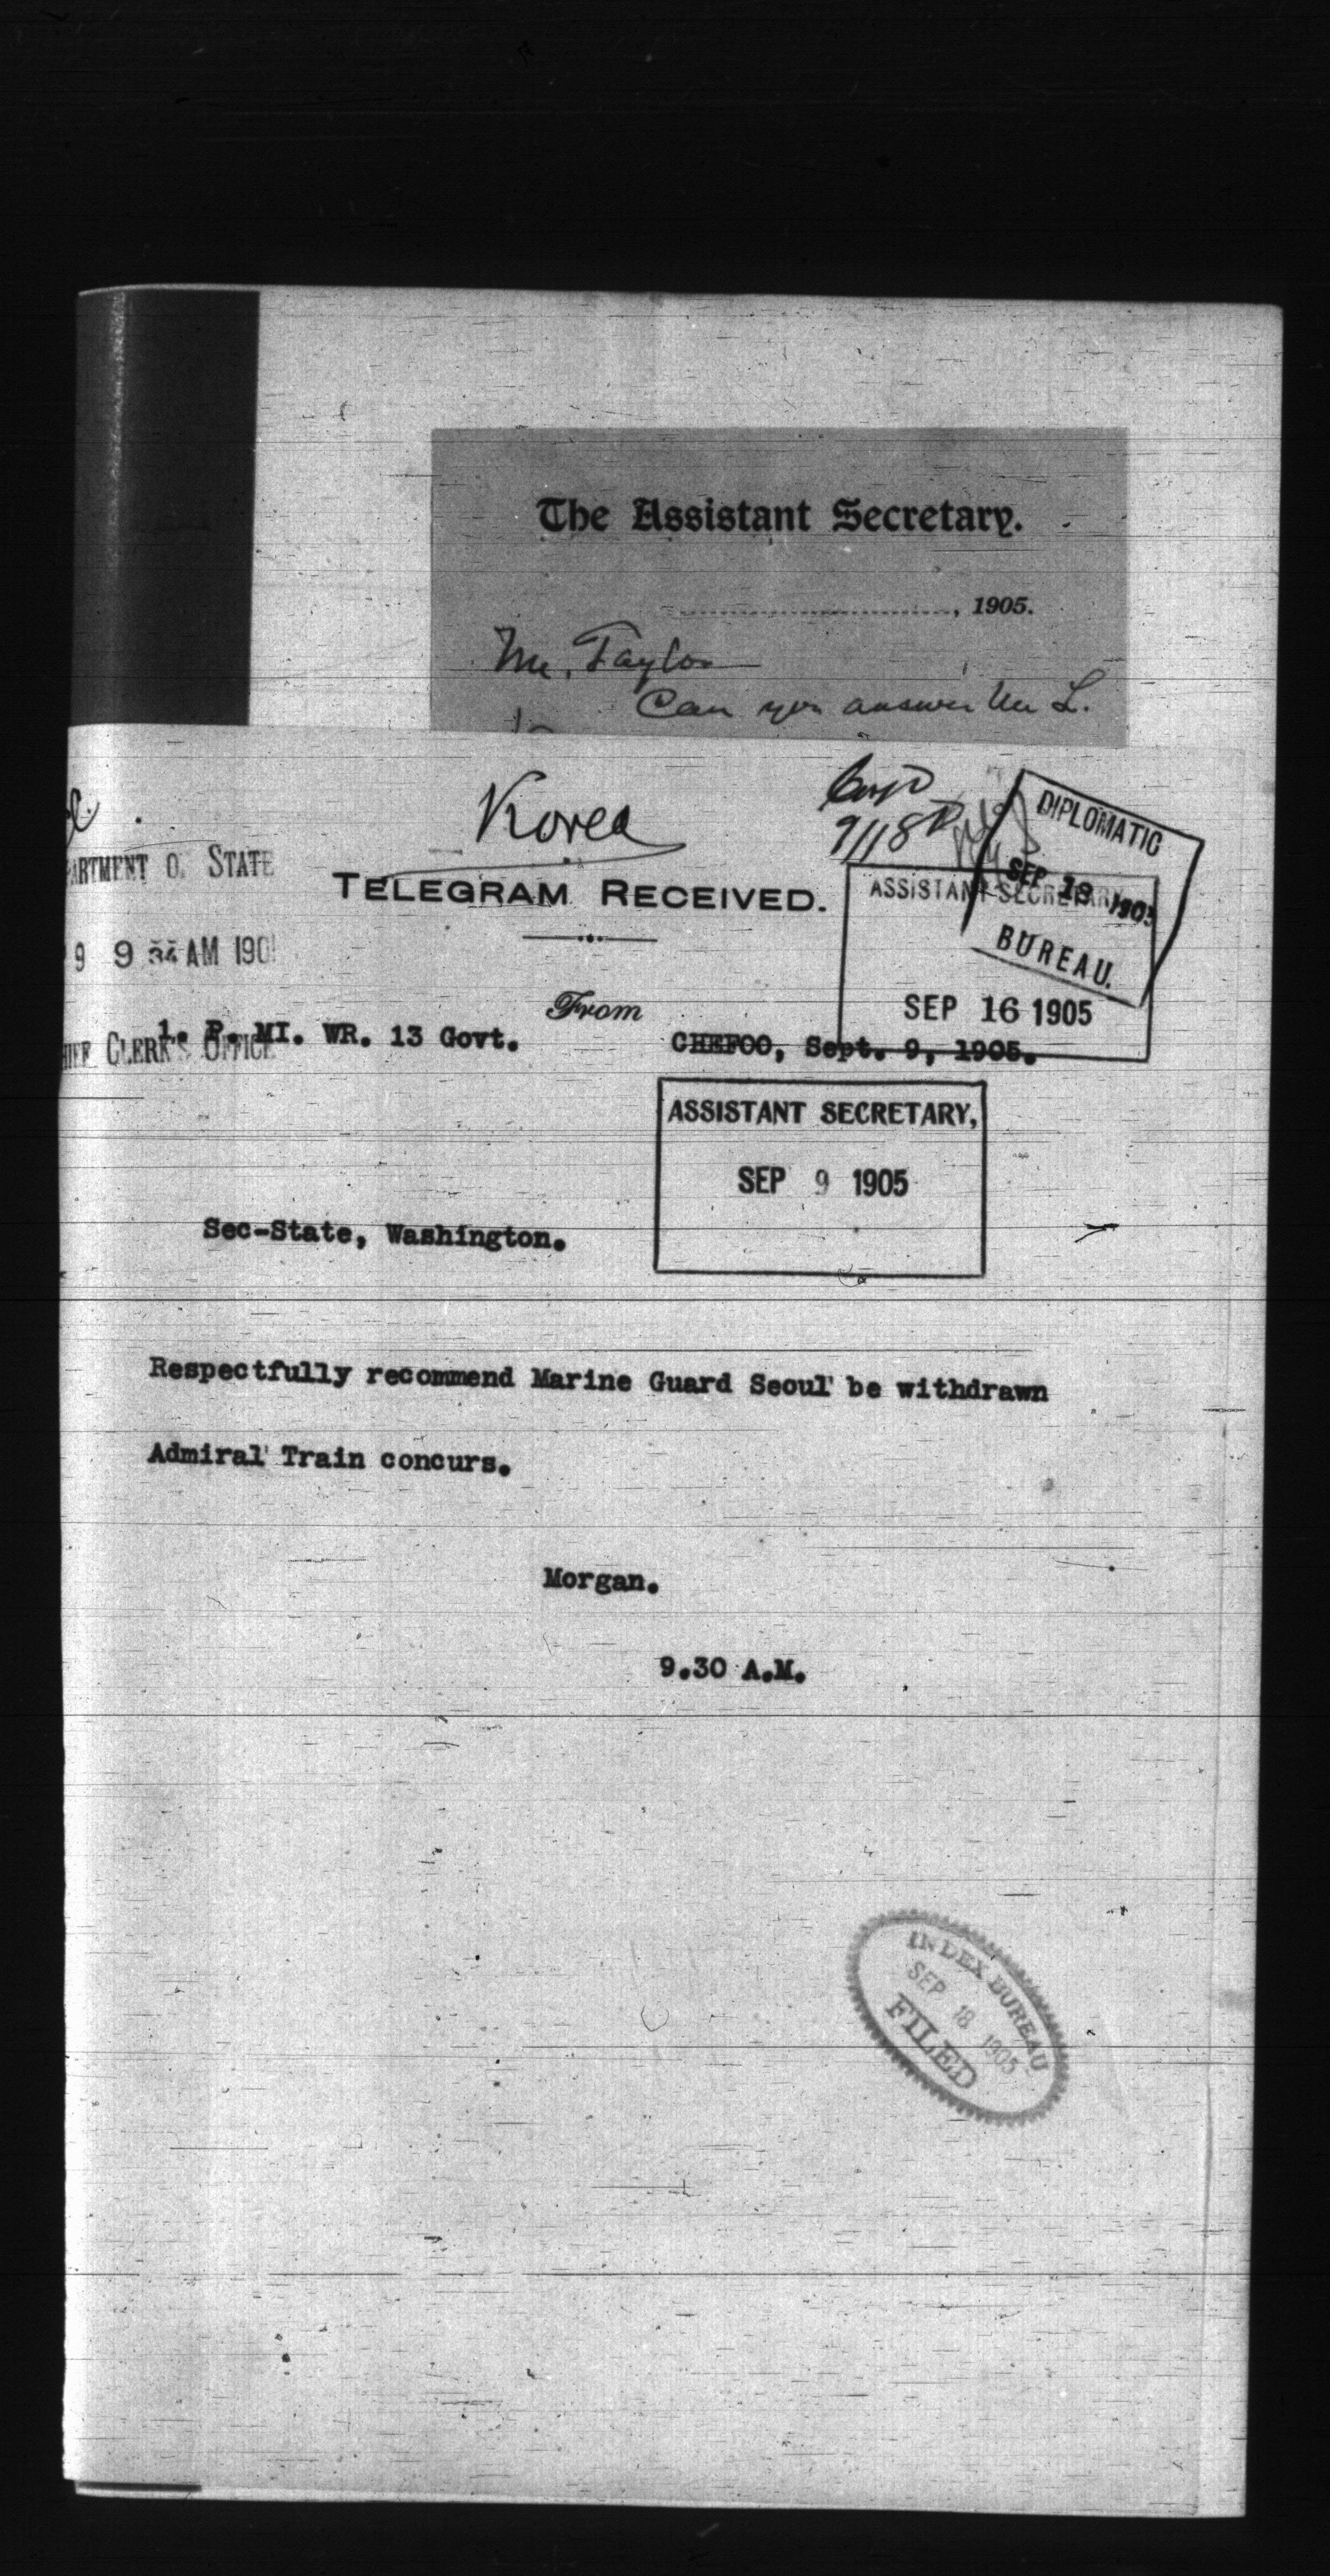 The Assistant Secretary.
, 1905.
Mr. Taylor
Can you answer Mr L.
Korea
9/18
DIPLOMATIC
SEP 19 1905
BUREAU.
PARTMENT O. STATE
TELEGRAM RECEIVED.
ASSISTANT SECRETARY
9 9 34 AM 190
SEP 16 1905
From
1. P. MI. WR. 13 Govt.
CHEFOO, Sept. 9, 1905.
HIEF CLERK'S OFFICE
ASSISTANT SECRETARY,
SEP 9 1905
Sec-State, Washington.
Respectfully recommend Marine Guard Seoul be withdrawn
Admiral Train concurs.
Morgan.
9.30 A.M.
INDEX BUREAU
SEP 18 1905
FILED